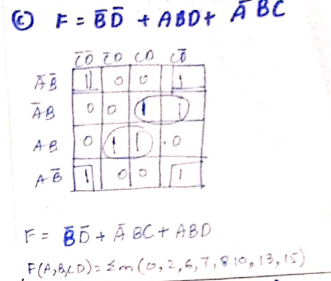 ⓒ F = B̄D̄ + ABD + ĀBC
C̄D̄ C̄D CD CD̄
ĀB̄ 1 0 0 1
ĀB 0 0 1 1
AB 0 1 1 0
AB̄ 1 0 0 1
F = B̄D̄ + ĀBC + ABD
F(A,B,C,D) = Σm(0,2,6,7,8 10,13,15)